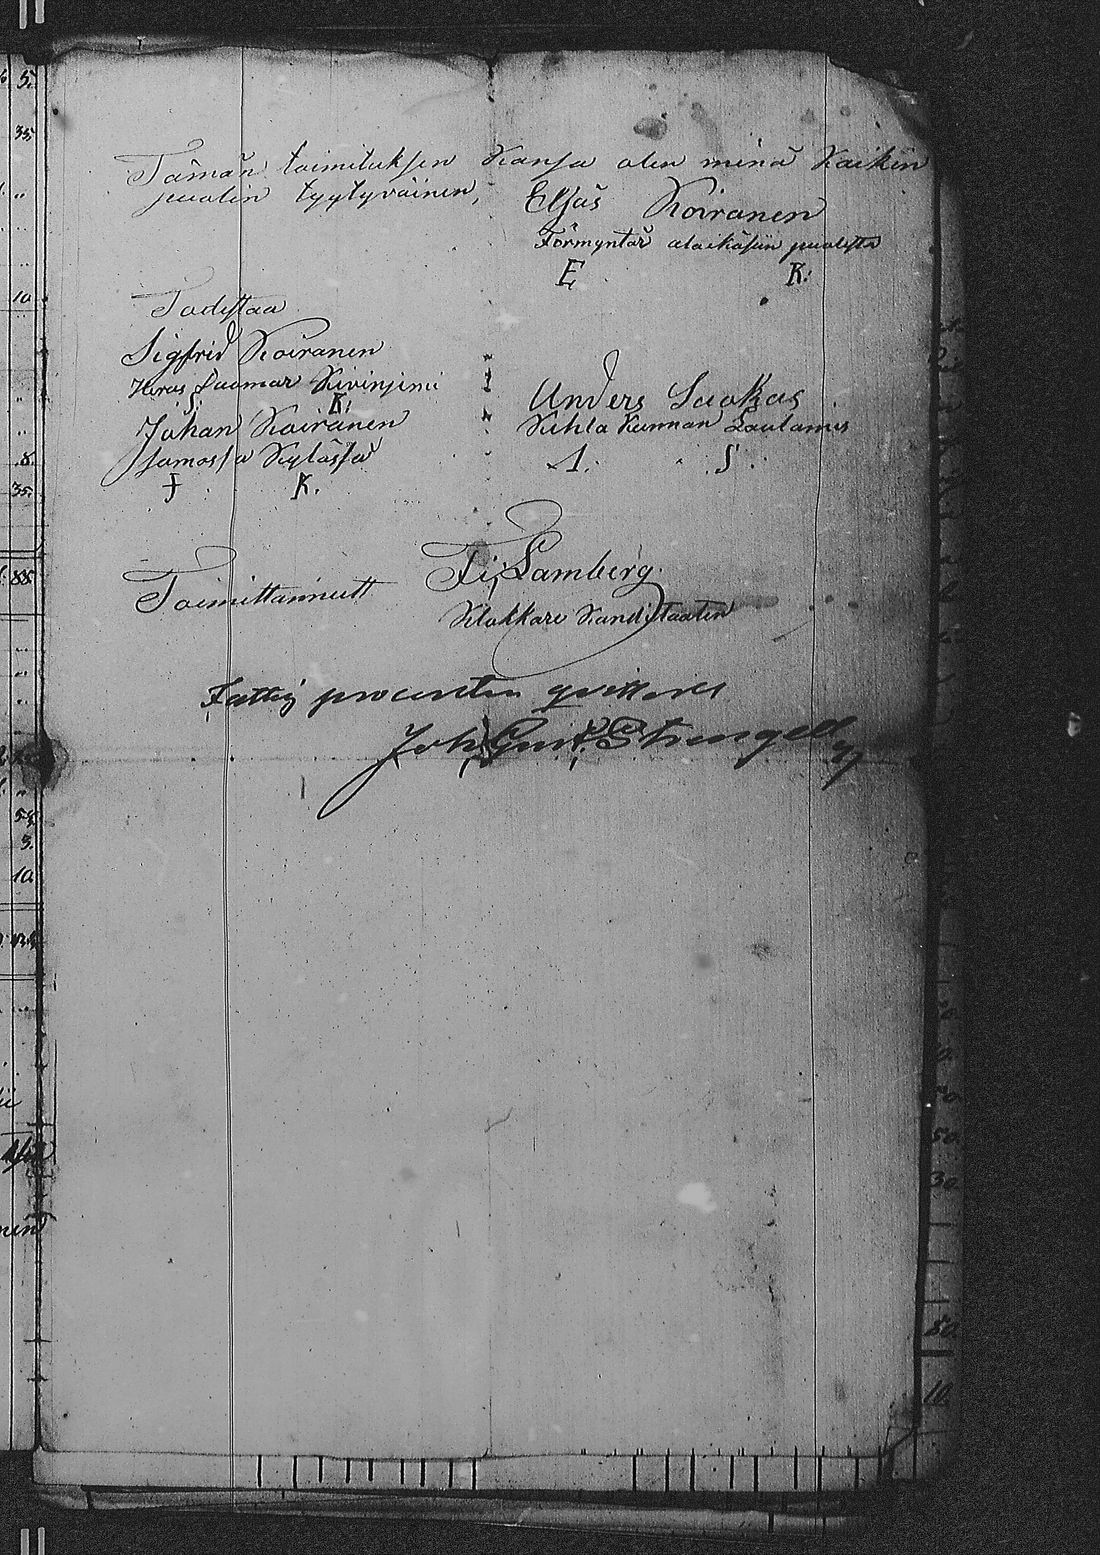 Tämän toimituksen Kansa olen minä Kaikin
puolin tyytyväinen,
Eljas Koiranen
Förmyntär alaikäsiin puolesta
E K:
Todistaa
Sigfrid Koiranen
Heras Luomar Kivinjemi
S K:
Johan Koiranen
Jamossa Kylässä
J K.
Anders Laakas
Kihla Kunnan Lautamis
A. S.
Toimittannutt
Fi, Lamberg
Klokkare Kanditaatin
Fattig procenten qvitteras
Joh, Gust, Strengell